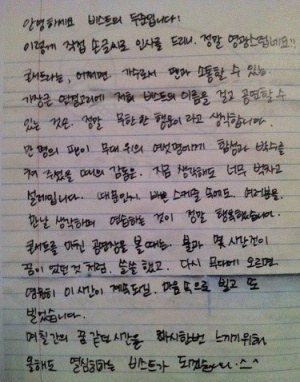 안녕하세요 비스트의 두준입니다!
이렇게 직접 손글씨로 인사를 드리니. 정말 영광스럽네요!!
콘서트라는, 어쩌면 가수로서 팬과 소통할 수 있는
가장큰 연결고리에 저희 비스트의 이름을 걸고 공연할 수
있는 것은. 정말 무한한 행운이라고 생각합니다.
만 명의 팬이 무대 위의 여섯명에게 함성과 박수를
쳐 주었을 때의 감동은. 지금 생각해도 너무 벅차고
설레입니다. 때문인지 바쁜 스케줄 속에도 여러분을.
만날 생각하며 연습하는 것이 정말 행복했습니다.
콘서트를 마친 공연장을 볼 때는. 불과 몇 시간전이
꿈이었던 것 처럼. 쓸쓸했고. 다시 무대에 오르면
영원히 이 시간이 계속되길. 마음 속으로 빌고 또
빌었습니다.
며칠간의 꿈 같던 시간을 다시한번 느끼기위해
올해도 열심히하는 비스트가 되겠습니다. ^^